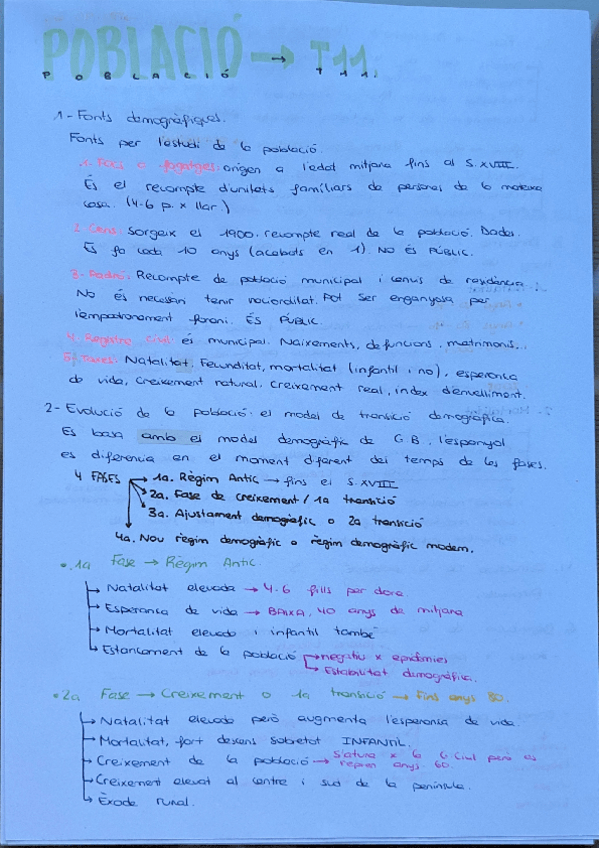 POBLACIÓ → T11.
POBLACIÓ T11.
1- Fonts demogràfiques.
Fonts per l'estudi de la població.
1. Focs o fogatges: origen a l'edat mitjana fins al S.XVIII.
És el recompte d'unitats famíliars de persones de la mateixa
casa. (4-6 p. x llar.)
2. Cens: sorgeix el 1900. recompte real de la població. Dades.
Es fa cada 10 anys (acabats en 1). NO ÉS PÚBLIC.
3- Padró: Recompte de població municipal i canvis de residència.
No és necessari tenir nacionalitat. Pot ser enganyosa per
l'empadronament ÉS PÚBLIC.
4. Registre civil: és municipal. Naixements, defuncions, matrimonis...
5. Taxes: Natalitat, Fecunditat, mortalitat (infantil i no), esperança
de vida, creixement natural, creixement real, índex d'envelliment.
2- Evolució de la població: el model de transició demogràfica.
Es basa amb el model demogràfic de G.B. l'espanyol
es diferencia en el moment diferent del temps de les fases.
4 FASES → 1a. Règim Antic → fins el S.XVIII
2a. Fase de creixement / 1a transició
3a. Ajustament demogràfic o 2a transició
4a. Nou règim demogràfic o règim demogràfic modern.
• 1a Fase → Règim Antic.
Natalitat elevada → 4-6 fills per dona.
Esperança de vida → BAIXA, 40 anys de mitjana
Mortalitat elevada i infantil també
Estancament de la població → negatiu x epidèmies
→ Estabilitat demogràfica.
• 2a Fase → Creixement o 1a transició → Fins anys 80.
Natalitat elevada però augmenta l'esperança de vida.
Mortalitat, fort descens sobretot INFANTIL.
Creixement de la població → S'atura x la G. Civil però es
repren anys 60.
Creixement elevat al centre i sud de la península.
Èxode rural.